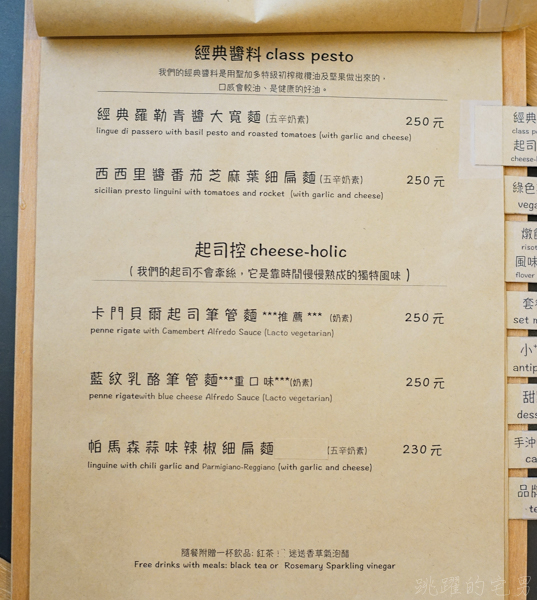 經典醬料 class pesto
我們的經典醬料是用聖加多特級初搾橄欖油及堅果做出來的,
口感會較油、是健康的好油。
經典羅勒青醬大寬麵 (五辛奶素) 250元
lingue di passero with basil pesto and roasted tomatoes (with garlic and cheese)
西西里醬番茄芝麻葉細扁麵 (五辛奶素) 250元
sicilian presto linguini with tomatoes and rocket (with garlic and cheese)
起司控 cheese-holic
( 我們的起司不會牽絲，它是靠時間慢慢熟成的獨特風味 )
卡門貝爾起司筆管麵 ***推薦*** (奶素) 250元
penne rigate with Camembert Alfredo Sauce (Lacto vegetarian)
藍紋乳酪筆管麵***重口味***(奶素) 250元
penne rigatewith blue cheese Alfredo Sauce (Lacto vegetarian)
帕馬森蒜味辣椒細扁麵 (五辛奶素) 230元
linguine with chili garlic and Parmigiano-Reggiano (with garlic and cheese)
隨餐附贈一杯飲品: 紅茶 迷迭香草氣泡醋
Free drinks with meals: black tea or Rosemary Sparkling vinegar
經典
class p
起司
cheese-
綠色
vega
燉
risot
風味
flover
套
set m
小
antip
甜
dess
手沖
ca
品牌
te
跳躍的宅男